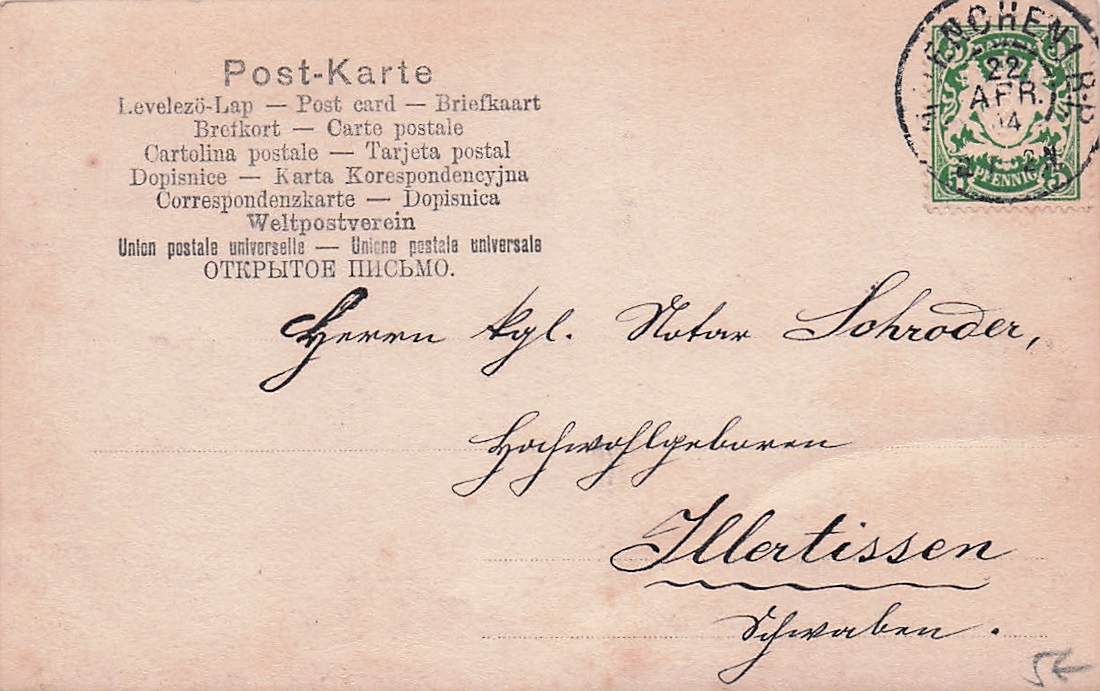 Post-Karte
Levelező-Lap — Post card — Briefkaart
Brefkort — Carte postale
Cartolina postale — Tarjeta postal
Dopisnice — Karta Korespondencyjna
Correspondenzkarte — Dopisnica
Weltpostverein
Union postale universelle — Unione postale universale
ОТКРЫТОЕ ПИСЬМО.
MUENCHEN I B.P.
22
APR.
04
BAYERN
5 PFENNIG 5
Herrn kgl. Notar Schroder,
Hochwohlgeboren
Illertissen
Schwaben.
5€